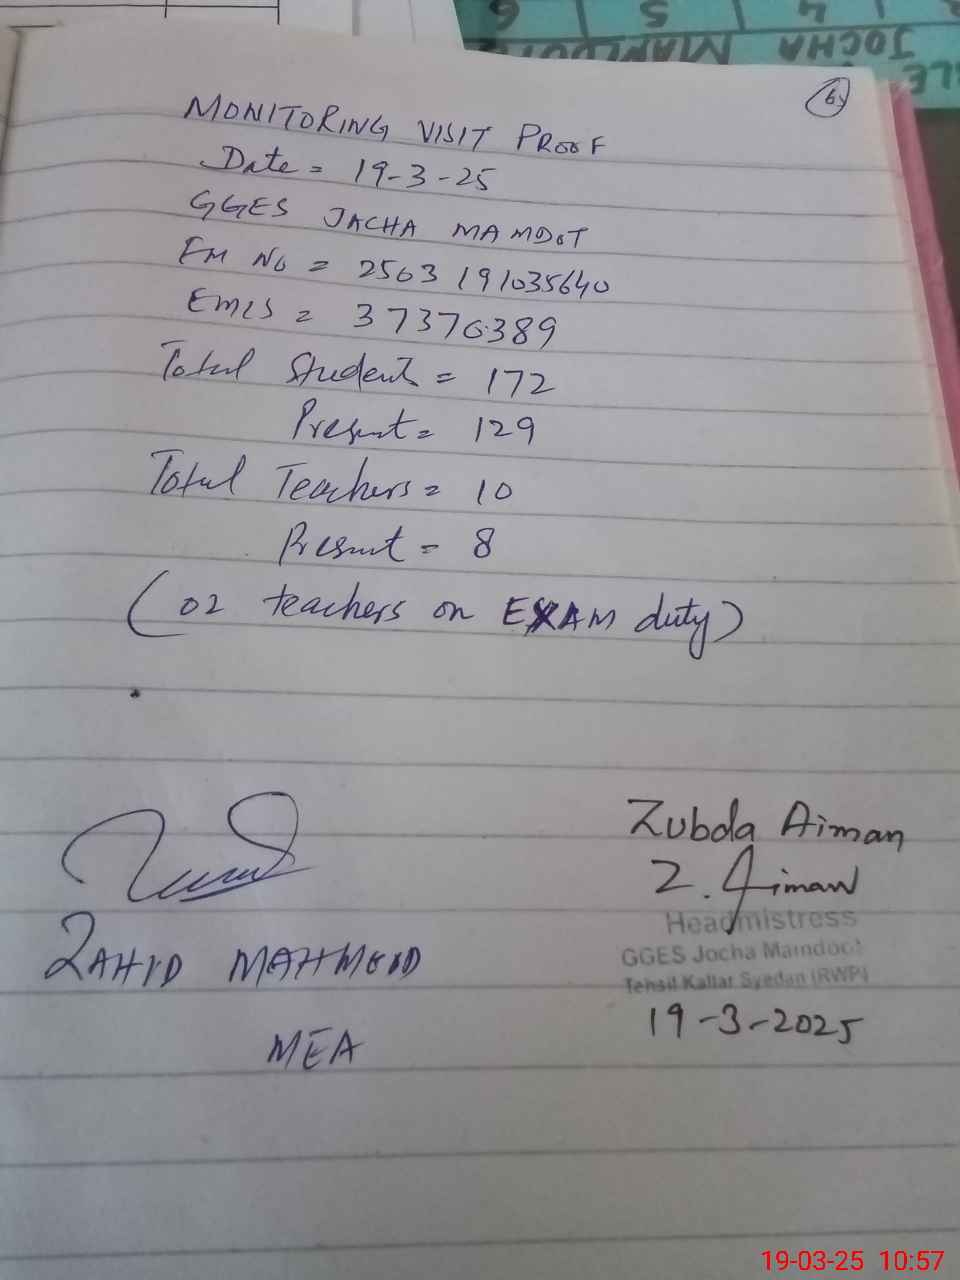 6
5
4
JOCHA MAMDOT
65
MONITORING VISIT PROOF
Date = 19-3-25
GGES JACHA MAMDOT
FM No = 2503 191035640
EMIS = 37370389
Total Students = 172
Present = 129
Total Teachers = 10
Present = 8
(02 teachers on EXAM duty)
Zubda Aiman
Z. Aiman
Headmistress
GGES Jocha Mamdoot
Tehsil Kallar Syedan (RWP)
19-3-2025
ZAHID MAHMOOD
MEA
19-03-25 10:57